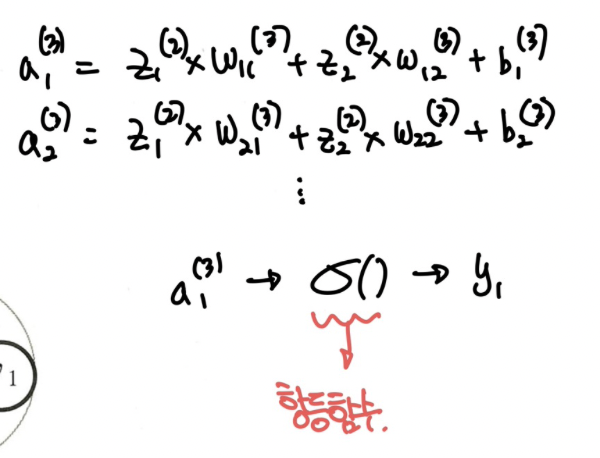 a₁⁽³⁾ = z₁⁽²⁾ × w₁₁⁽³⁾ + z₂⁽²⁾ × w₁₂⁽³⁾ + b₁⁽³⁾
a₂⁽³⁾ = z₁⁽²⁾ × w₂₁⁽³⁾ + z₂⁽²⁾ × w₂₂⁽³⁾ + b₂⁽³⁾
⋮
a₁⁽³⁾ → σ() → y₁
1
항등함수.